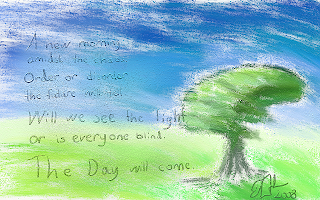 A new morning
amidst the chaos
Order or disorder
the future will tell
Will we see the light
or is everyone blind.
The Day will come.
2008